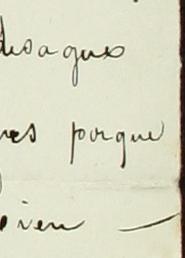 desagues
res porque
viven —